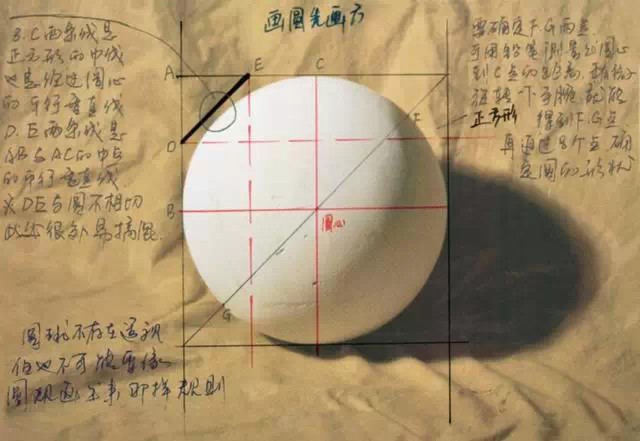 画圆先画方
B.C两条线是
正方形的中线
也是经过圆心
的平行垂直线
D.E两条线是
AB与AC的中点
的平行垂直线
※DE与圆不相切
此处很容易搞混.
要确定F.G两点
可用铅笔测量出圆心
到C点的距离,再稍微
旋转一下手腕就能
正方形
得到F.G点
再通过8个点确
定圆的形状
A
E
C
F
D
B
圆心
G
圆球不存在透视
但也不可能要像
圆规画出来那样规则